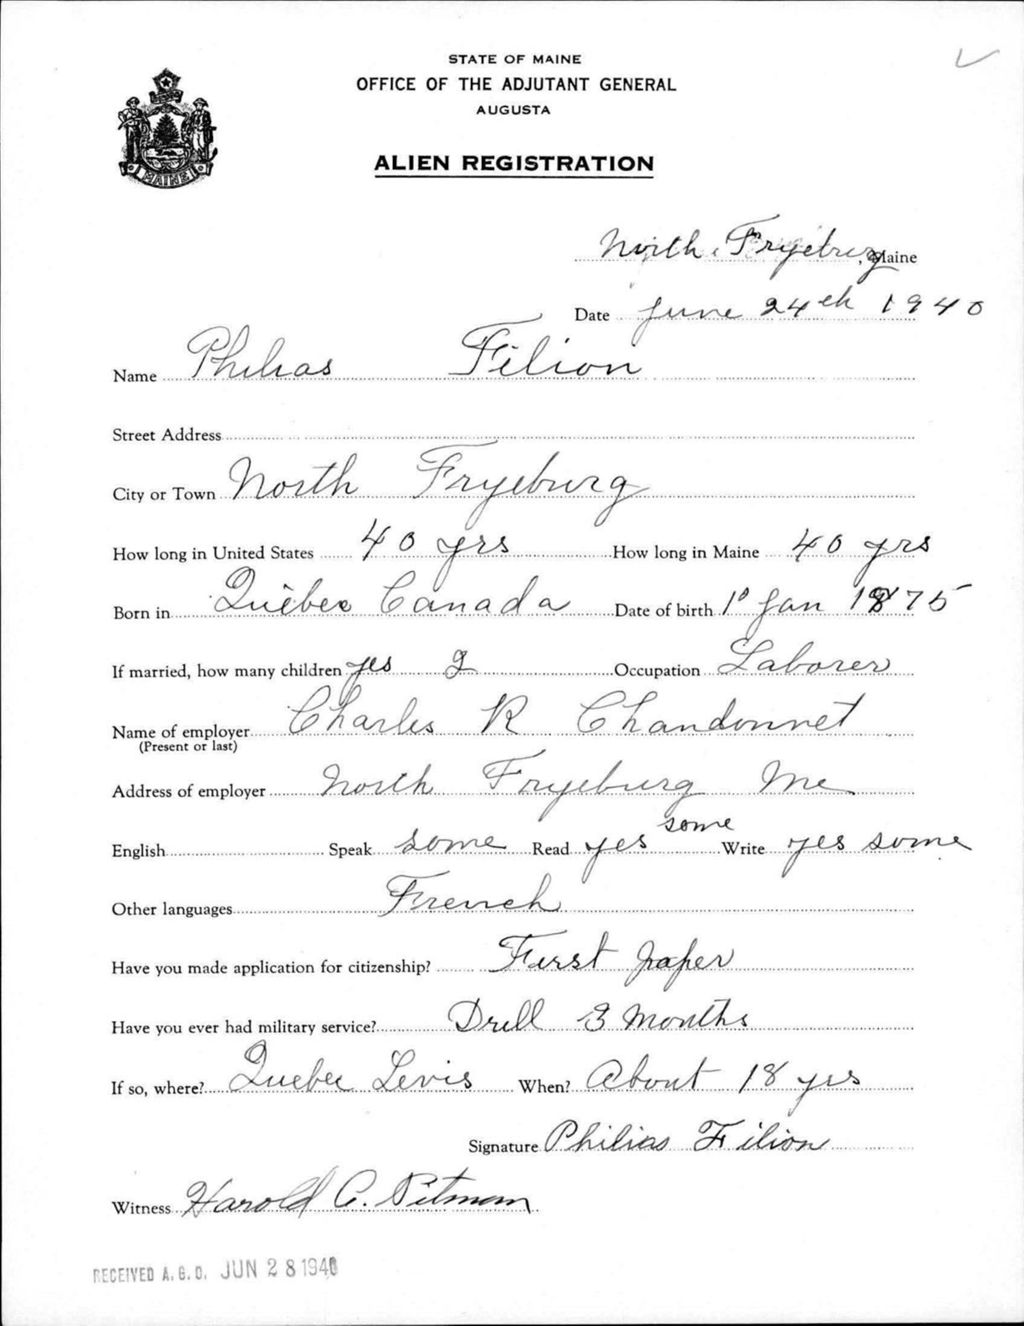 STATE OF MAINE
OFFICE OF THE ADJUTANT GENERAL
AUGUSTA
ALIEN REGISTRATION
MAINE
North Fryeburg, Maine
Date June 24th 1940
Name Philias Filion
Street Address
City or Town North Fryeburg
How long in United States 40 yrs How long in Maine 40 yrs
Born in Quebec Canada Date of birth 1° Jan 1875
If married, how many children yes 2 Occupation Laborer
Name of employer Charles R Chandonnet
(Present or last)
Address of employer North Fryeburg Me
English Speak some Read yes some Write yes some
Other languages French
Have you made application for citizenship? First paper
Have you ever had military service? Drill 3 Months
If so, where? Quebec Levis When? About 18 yrs
Signature Philias Filion
Witness Harold C. Pitman
RECEIVED A.G.O. JUN 28 1940